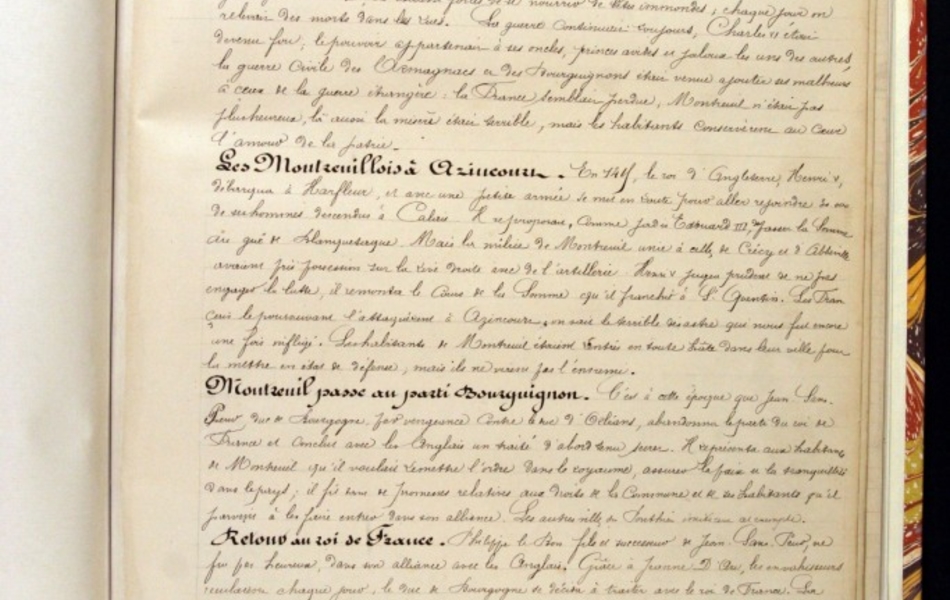 de se nourrir de bêtes immondes ; chaque jour on
relevait des morts dans les rues. La guerre continuait toujours, Charles VI était
devenu fou, le pouvoir appartenait à ses oncles, princes avides et jaloux les uns des autres,
la guerre civile des Armagnacs et des Bourguignons était venue ajouter ses malheurs
à ceux de la guerre étrangère : la France semblait perdue, Montreuil n'était pas
plus heureux, là aussi la misère était terrible, mais les habitants conservèrent au cœur
l'amour de la patrie.
Les Montreuillois à Azincourt. En 1415, le roi d'Angleterre, Henri V,
débarqua à Harfleur, et avec une petite armée se mit en route pour aller rejoindre
de ses hommes descendus à Calais. Il se proposait, comme jadis Edouard III, de passer la Somme
au gué de Blanquetaque. Mais la milice de Montreuil unie à celles de Crécy et d'Abbeville
avaient pris possession sur la rive droite avec de l'artillerie. Henri V jugea prudent de ne pas
engager la lutte, il remonta le cours de la Somme qu'il franchit à St Quentin. Les Fran
çais le poursuivant l'attaquèrent à Azincourt, on sait le terrible désastre qui nous fut encore
une fois infligé. Les habitants de Montreuil étaient rentrés en toute hâte dans leur ville pour
la mettre en état de défense, mais ils ne virent pas l'ennemi.
Montreuil passe au parti Bourguignon. C'est à cette époque que Jean-Sans-
Peur, duc de Bourgogne, par vengeance contre le duc d'Orléans, abandonna le parti du roi de
France et conclut avec les Anglais un traité d'abord tenu secret. Il représenta aux habitants
de Montreuil qu'il voulait remettre l'ordre dans le royaume, assurer la paix et la tranquillité
dans le pays ; il fit tant de promesses relatives aux droits de la Commune et de ses habitants qu'il
parvint à les faire entrer dans son alliance. Les autres villes du Ponthieu
Retour au roi de France. Philippe le Bon fils et successeur de Jean-Sans-Peur, ne
fut pas heureux, dans son alliance avec les Anglais. Grâce à Jeanne D'Arc, les envahisseurs
chaque jour, le duc de Bourgogne se décida à traiter avec le roi de France. La